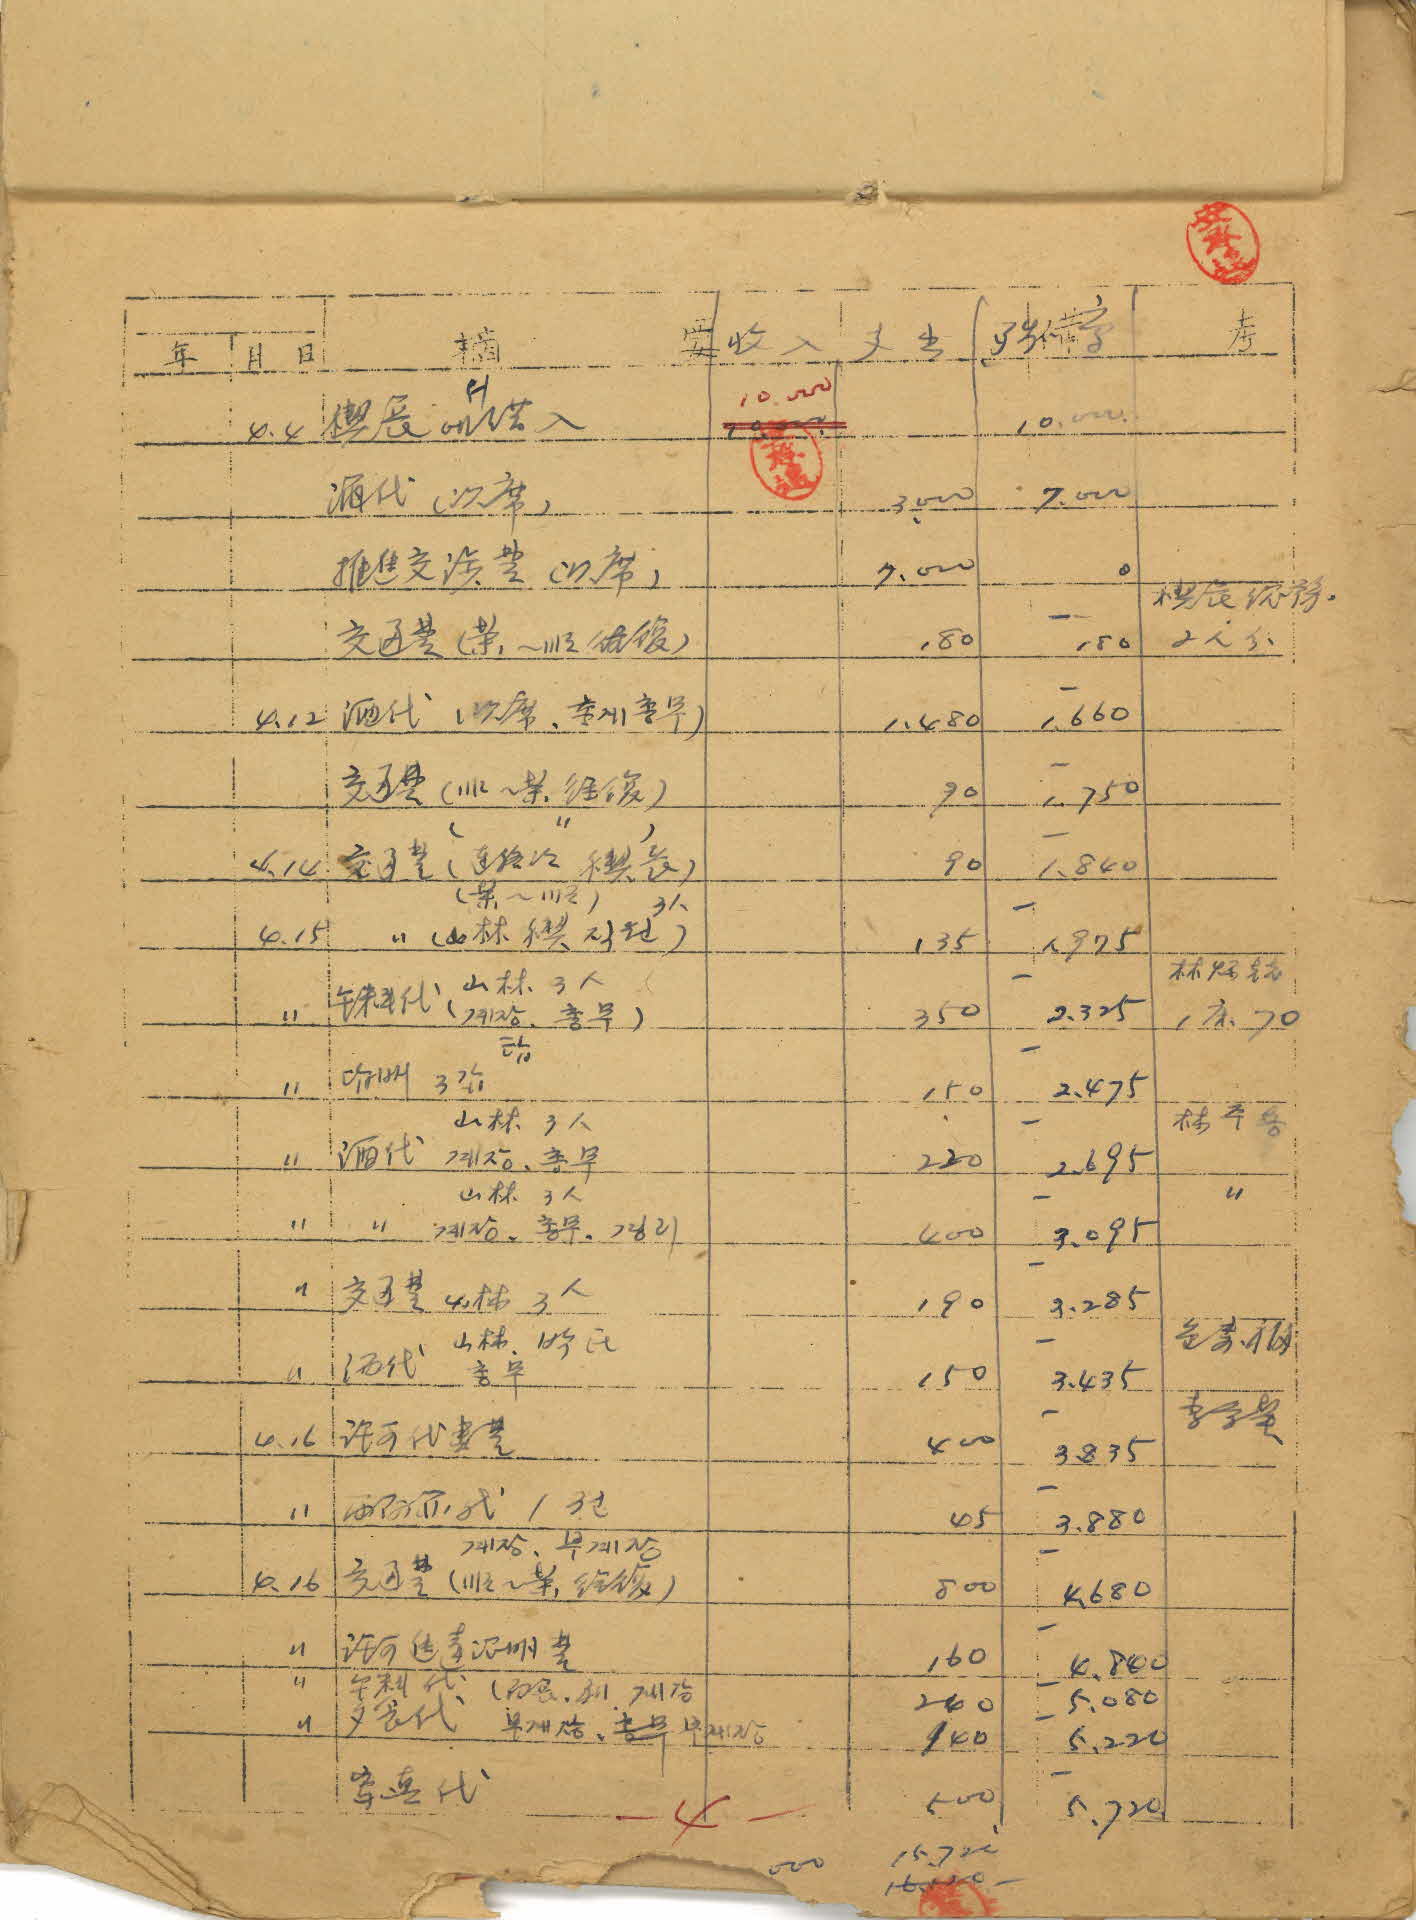 年 月 日 摘 要 收入 支出 残 備 考
10.000
4.4 楔長에서 借入 10.000 10.000
酒代 (次席) 3.000 7.000
推進交渉費 (次席) 7.000 0
楔長 総務.
交通費 (栄.~順 往復) 180 - 180 2人分
4.12 酒代 (次席. 총계총무) 1.480 - 1.660
交通費 (順~栄. 往復) 90 - 1.750
( 〃 )
4.14 交通費 (連絡次 楔長) 90 - 1.840
(栄.~順) 3人
4.15 〃 (山林 楔 직원) 135 - 1.975
山林 3人
〃 (계장. 총무) 350 - 2.325 1床. 70
〃 담배 3갑 150 - 2.475
山林 3人 林
〃 酒代 계장. 총무 220 - 2.695
山林 3人 〃
〃 〃 계장. 총무. 경리 400 - 3.095
〃 交通費 山林 3人 190 - 3.285
山林. 朴氏
〃 酒代 총무 150 - 3.435
4.16 許可代書費 400 - 3.835
〃 代 1 45 - 3.880
계장. 부계장
4.16 交通費 (順~栄. 往復) 800 - 4.680
〃 許可 証明費 160 - 4.840
〃 代 계장 240 - 5.080
〃 夕食代 부계장. 총무 부계장 140 - 5.220
写真代 500 - 5.720
- 4 -
000 15.720